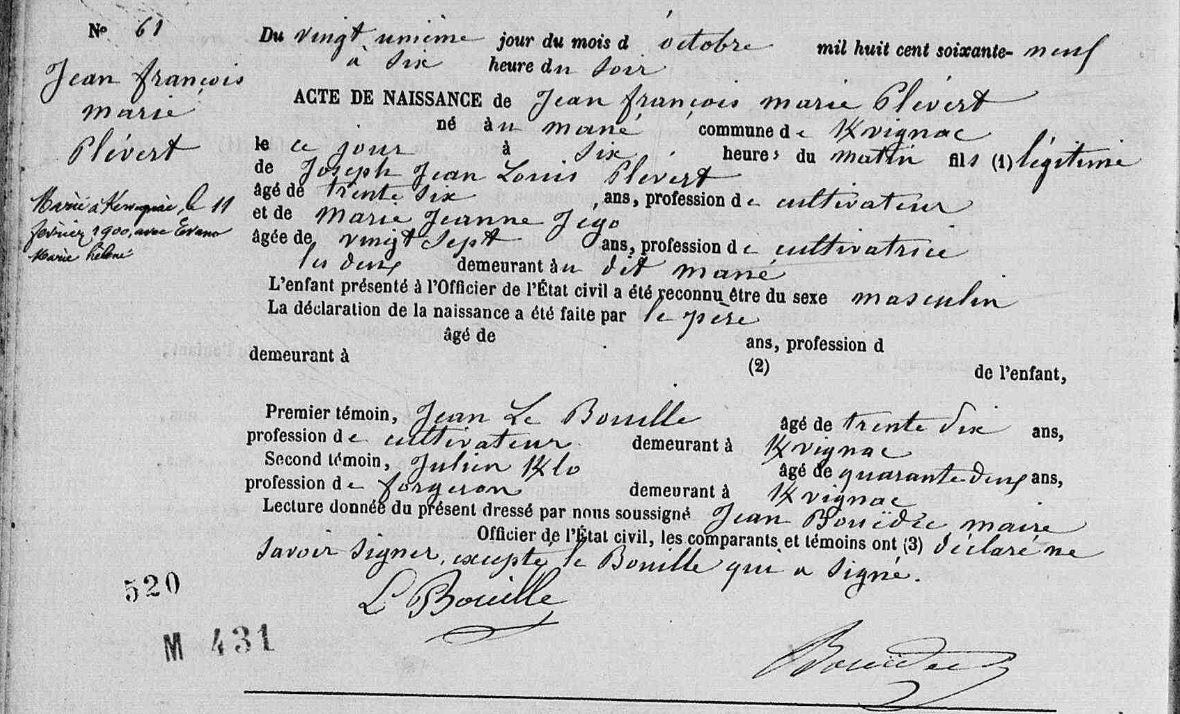 N° 61
Jean françois
marie
Plévert
Marié à Kervignac, le 11
février 1900, avec Evano
Marie hélène
Du vingt unième jour du mois d octobre mil huit cent soixante- neuf
à six heure du soir
ACTE DE NAISSANCE de Jean françois marie Plévert
né à u mané commune d e Kvignac
le ce jour à six heures du matin fils (1) légitime
de Joseph Jean Louis Plévert
âgé de trente six ans, profession d e cultivateur
et de marie Jeanne Jégo
âgée de vingt sept ans, profession d e cultivatrice
les deux demeurant à u dit mané
L'enfant présenté à l'Officier de l'État civil a été reconnu être du sexe masculin
La déclaration de la naissance a été faite par le père
âgé de ans, profession d
demeurant à (2) de l'enfant,
Premier témoin, Jean Le Bouille âgé de trente dix ans,
profession d e cultivateur demeurant à Kvignac
Second témoin, Julien Klo âgé de quarante-deux ans,
profession d e forgeron demeurant à Kvignac
Lecture donnée du présent dressé par nous soussigné Jean Bouëdec maire
Officier de l'État civil, les comparants et témoins ont (3) déclaré ne
savoir signer, excepté le Bouille qui a signé.
Le Bouille
Bouëdec
520
M 431